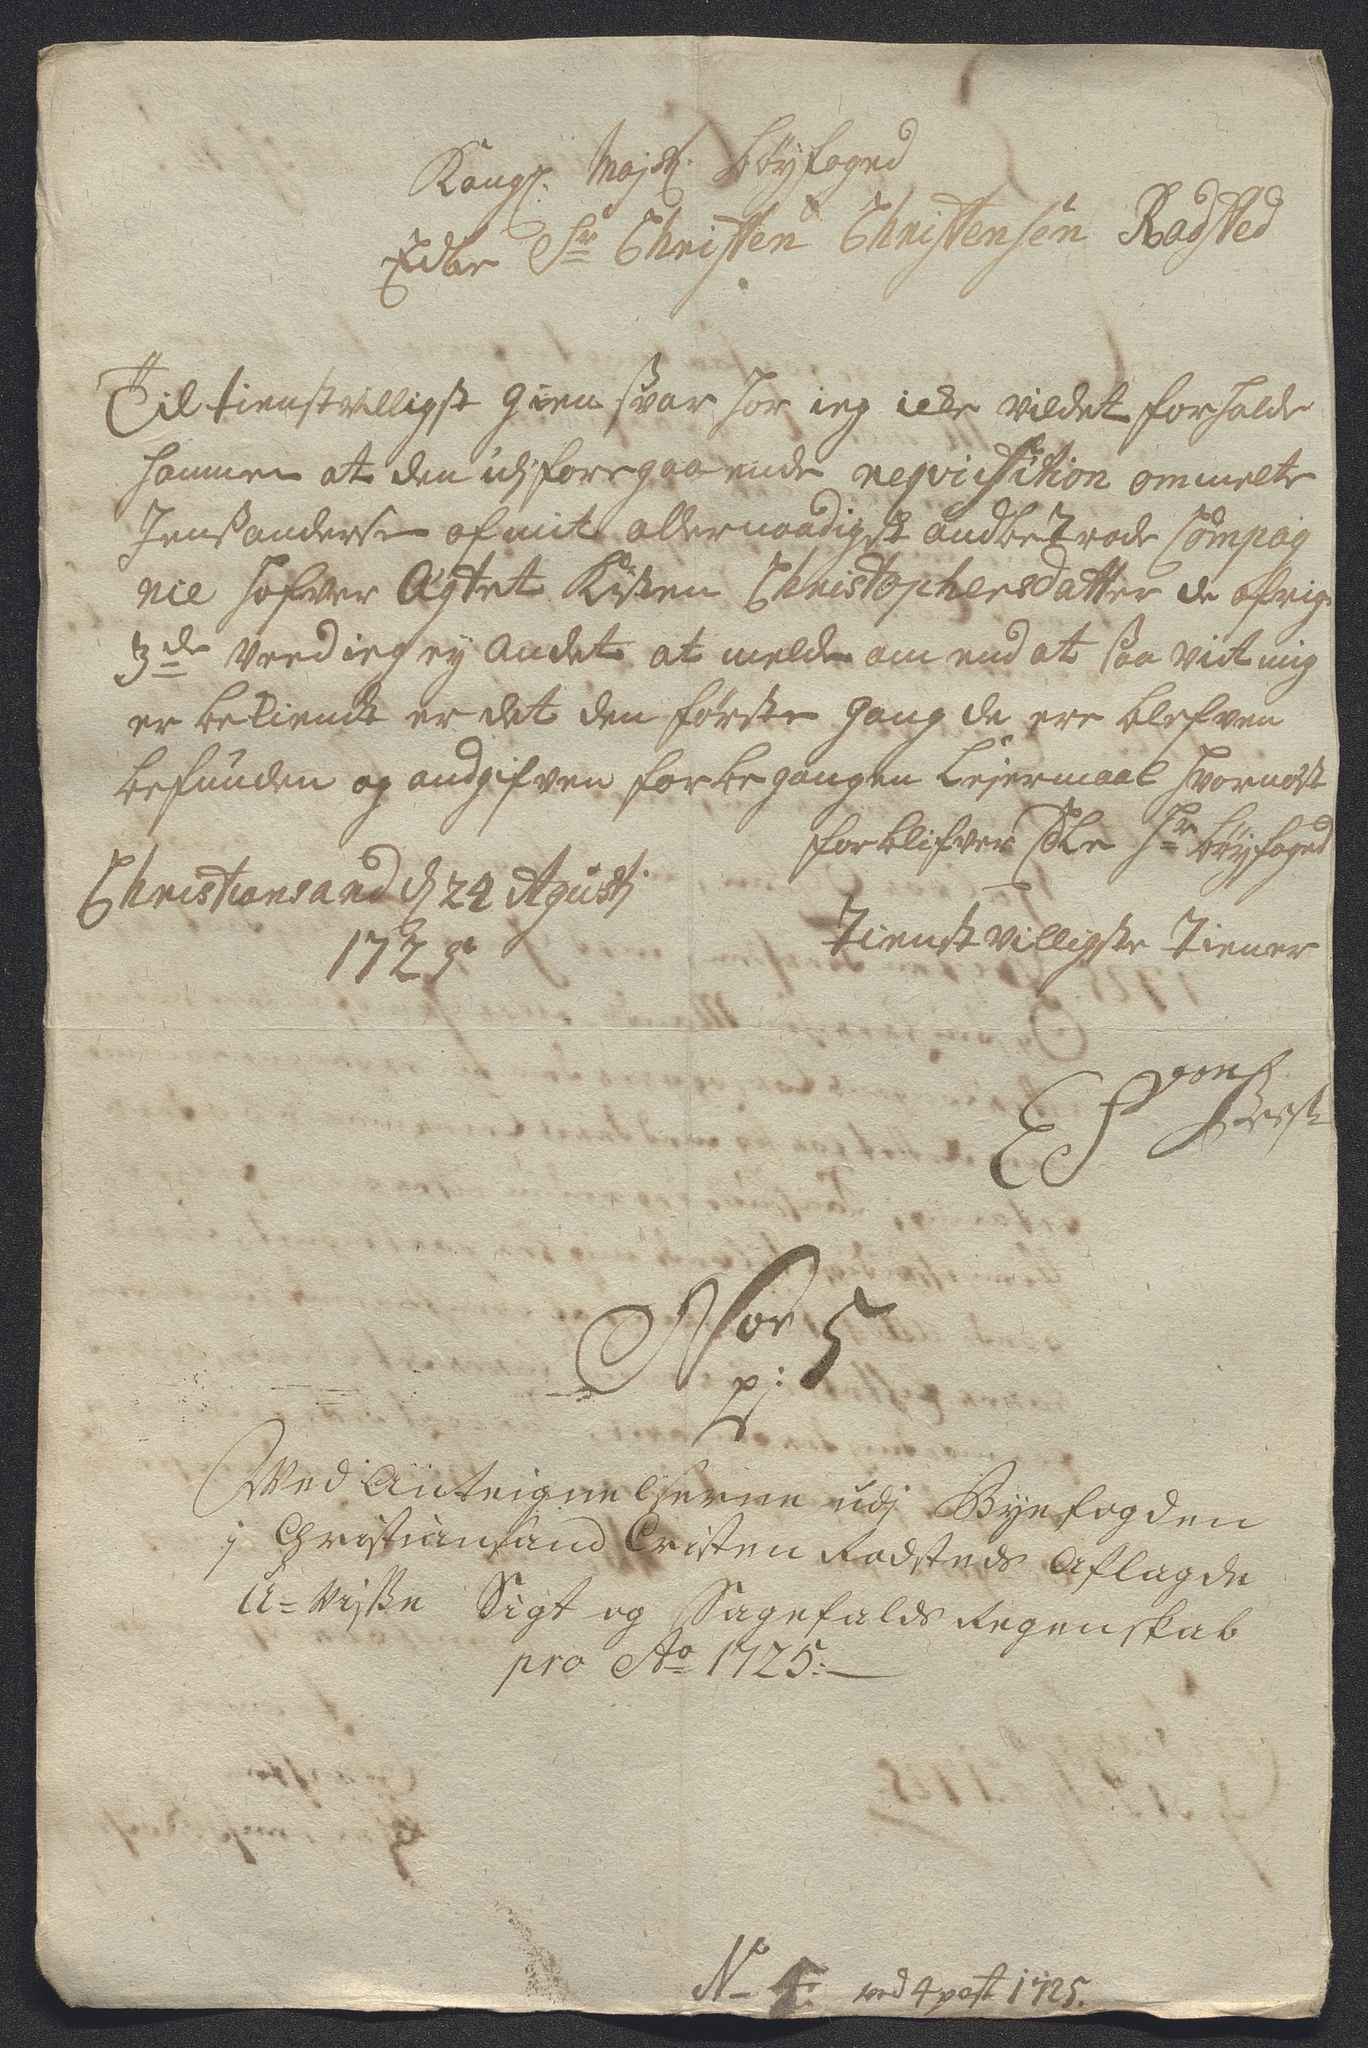 Kongl. Majst. Böyfoged
Edle Hr Christen Christensen Radsted
Til tienstvilligst gien svar har ieg icke vildet forholde
hannem at den udj foregaaende reqvisition ommelte
Jens andersen af mit allernaadigst andbetrode Compag
nie hafver Ægtet Kisten Christophersdatter de øfrige
3de veed ieg ey andet at melde om end at saa vit mig
er bekiendt er det den første gang de ere blefven
befunden og andgifven for begangen Leiermaal hvornæst
forblifver Edle Hr böyfoged
Christiansand d 24 Agustj
1725
Tienstvilligste Tiener
E F von
Nor 5
p:
Ved Anteignelserne udj Byefogden
j Christiansand Cristen Rodsteds Aflagde
U=Visse Sigt og Sagefalds Regenskab
pro Ao 1725:
No 4: ved 4 post 1725.